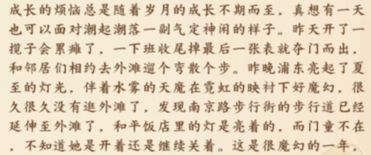 成长的烦恼总是随着岁月的成长不期而至，真想有一天
也可以面对潮起潮落一副气定神闲的样子。昨天开了一
揽子会累瘫了，一下班收尾掉最后一张表就夺门而出，
和邻居们相约去外滩遛个弯散个步。昨晚浦东亮起了夏
至的灯光，伴着水雾的天雁在霓虹的映村下好魔幻，很
久很久没有逛外滩了，发现南京路步行街的步行道已经
延伸至外滩了，和平饭店里的灯是亮着的，而门童不在
，不知道她是开着还是继续关着。这是很魔幻的一年，